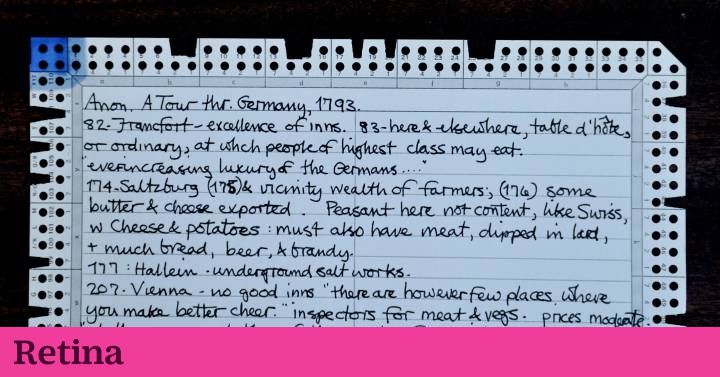 Anon. A Tour thr. Germany, 1793.
82- Francfort - excellence of inns. 83-here & elsewhere, table d'hôte,
or ordinary, at which people of highest class may eat.
"ever increasing luxury of the Germans...."
174. Saltzburg (175) & vicinity wealth of farmers, (176) some
butter & cheese exported. Peasant here not content, like Swiss,
w Cheese & potatoes: must also have meat, dipped in lard,
+ much bread, beer, & brandy.
177: Hallein - underground salt works.
207- Vienna - no good inns "there are however few places where
you make better cheer." inspectors for meat & vegs. prices moderate.
Retina